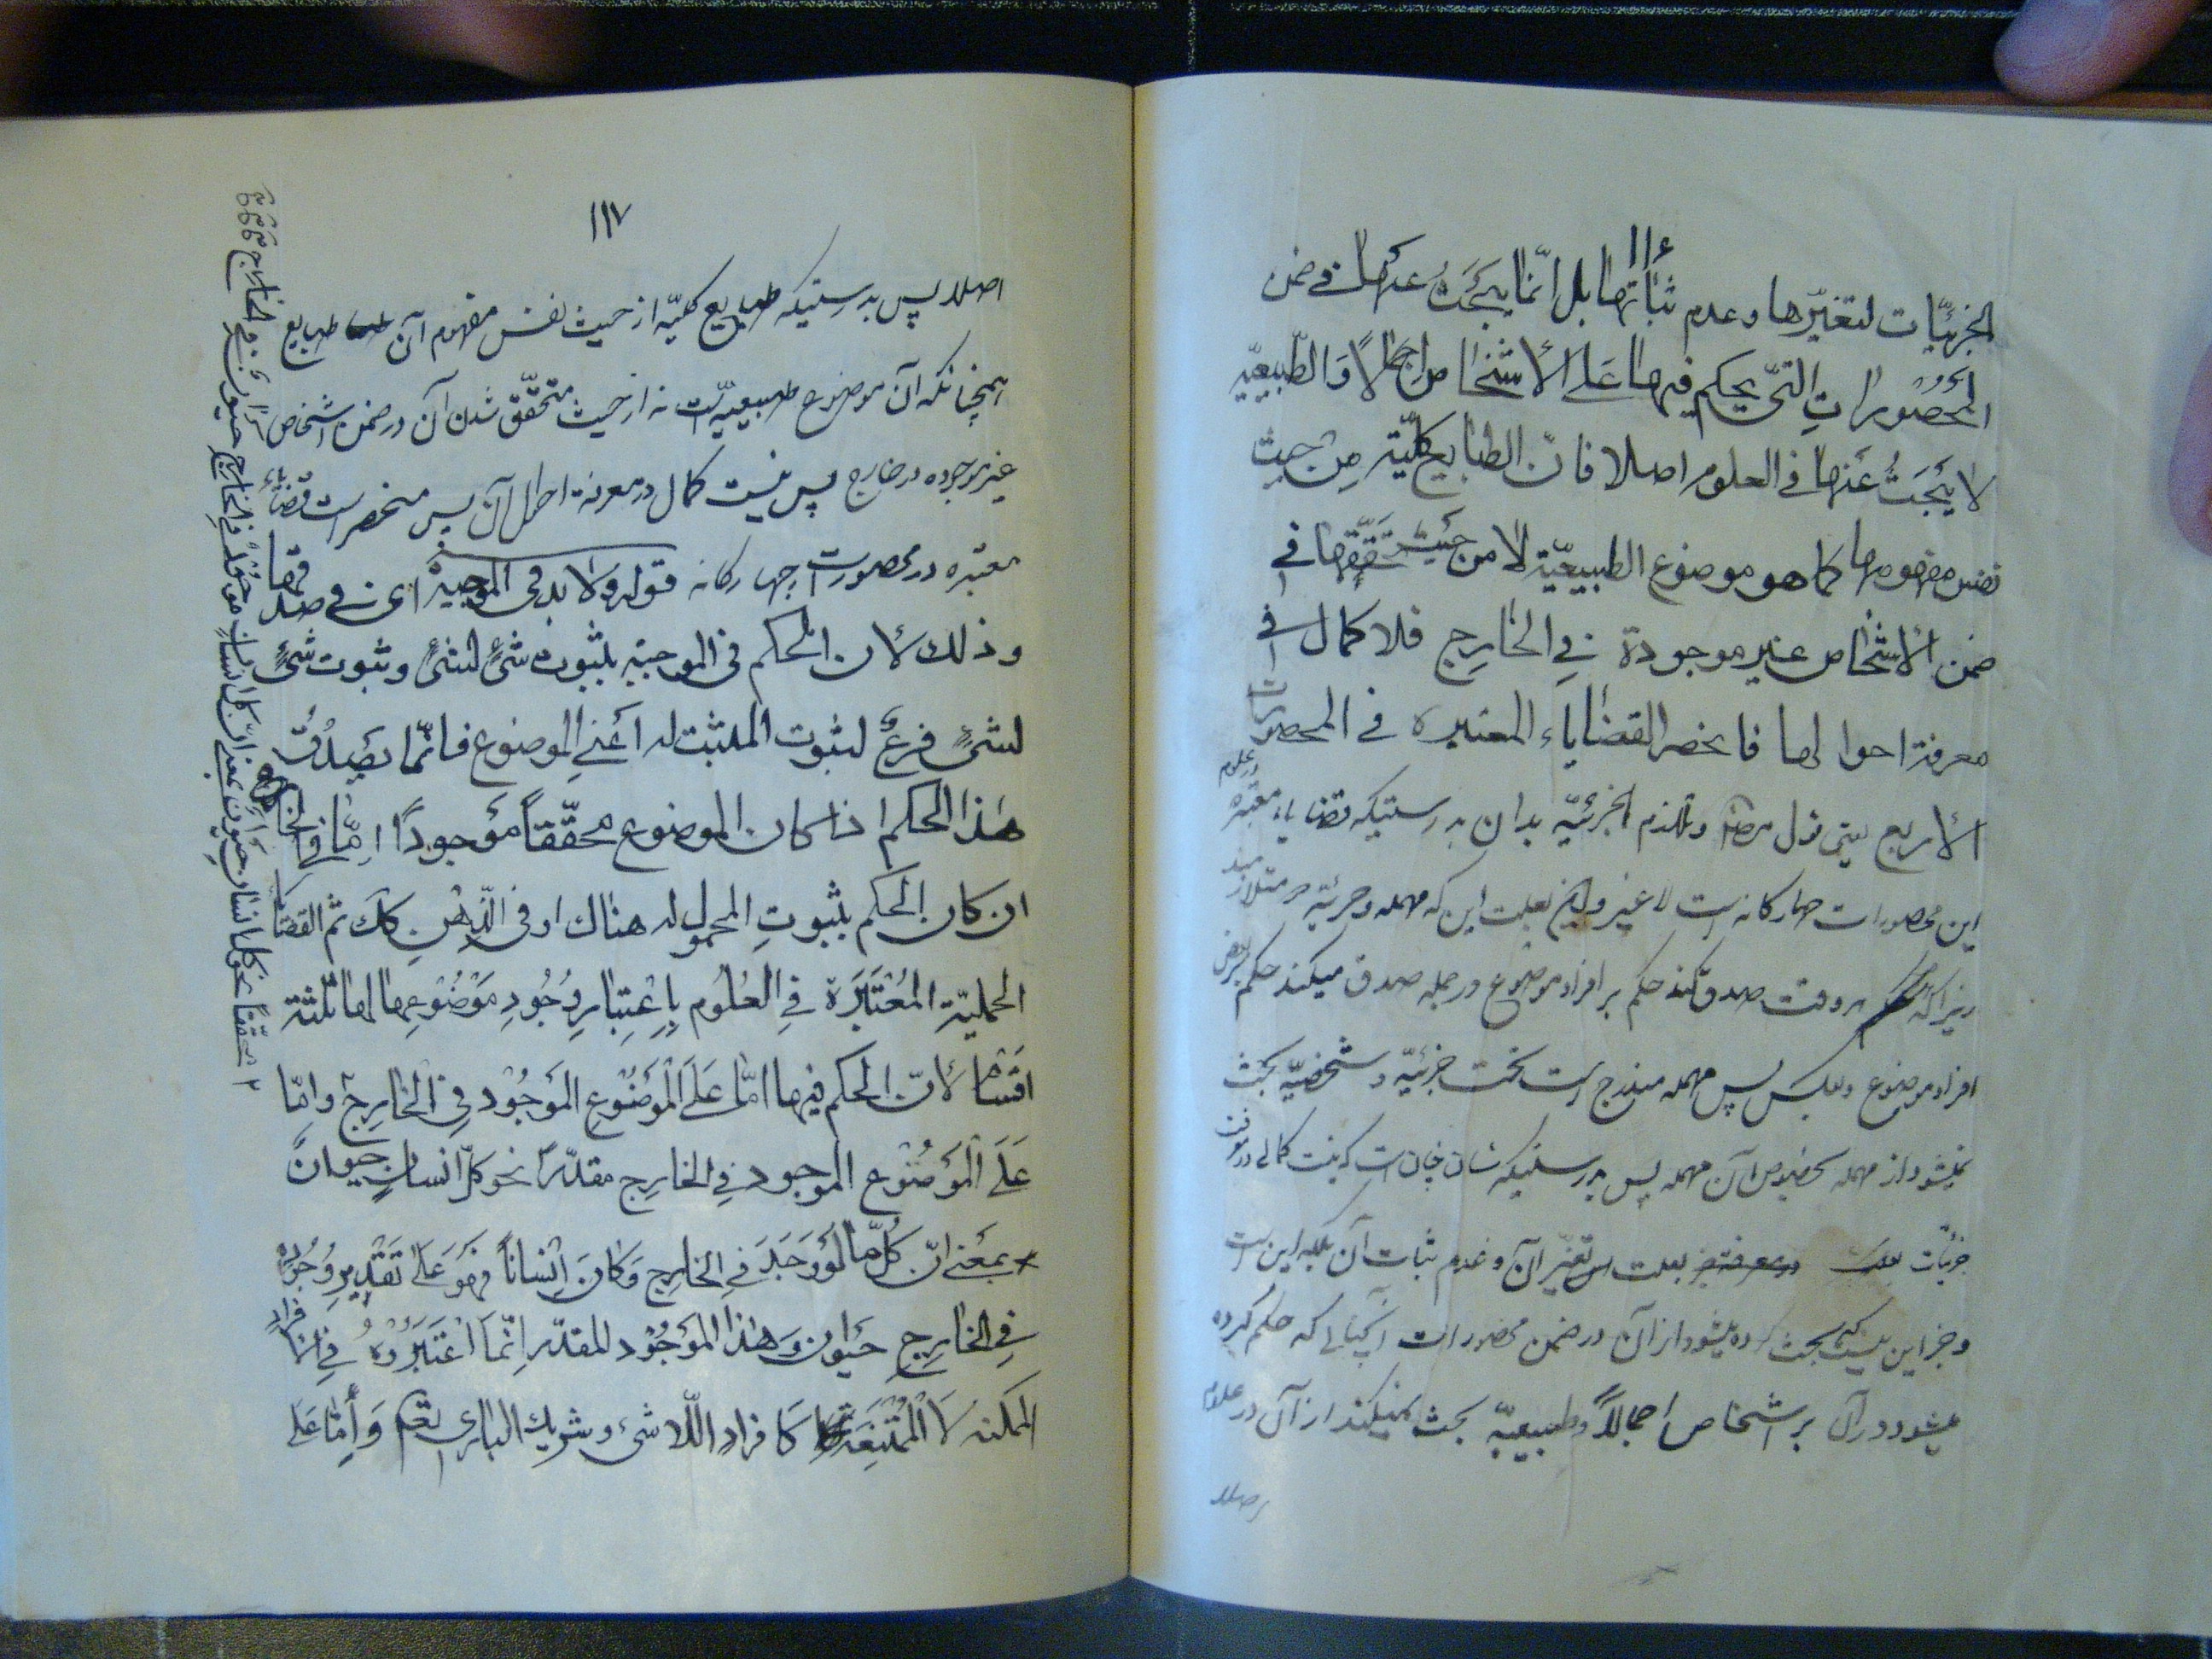 الجزئيّات لتغيّرها وعدم ثباتها بل انّما يبحث عنها في ضمن
المحصورات التي يحكم فيها على الأشخاص اجمالا والطبيعيّة
لا يبحث عنها في العلوم اصلا فانّ الطبايع كليّة من حيث
نفس مفهومها كما هو موضوع الطبيعيّة لا من حيث تحقّقها في
ضمن الأشخاص غير موجودة في الخارج فلا كمال في
معرفة احوالها فانحصر القضاياء المعتبره في المحصورات
الأربع يعنى وتلازم الجزئيّه بدان بدرستيكه قضاياء معتبره در علوم
اين محصورات چهاركانه است لا غير واين بعلت اين كه مهمله وجزئيّه متلازمند
زيراكه هر وقت صدق كند حكم بر افراد موضوع در جمله صدق ميكند حكم بر بعض
افراد موضوع وبعكس پس مهمله مندرج است تحت جزئيّه وشخصيّه بحث
نميشود از مهمله بخصوص آن مهمله پس بدرستيكه شان چنان است كه نيست كمالى در معرفت
جزئيّات بعلت تغيّر آن وعدم ثبات آن بلكه اين است
وجز اين نيست كه بحث كرده ميشود از آن در ضمن محصورات آنچنانى كه حكم كرده
ميشود در آن بر اشخاص اجمالاً وطبيعيّه بحث نميكند از آن در علوم
اصلا
١١٧
اصلا پس بدرستيكه طبايع كليّه از حيث نفس مفهوم آن طبايع
همچنانكه آن موضوع طبيعيّه است نه از حيث متحقّق شدن آن در ضمن اشخاص
غير موجوده در خارج پس نيست كمال در معرفة احوال آن پس منحصر است قضاياء
معتبره در محصورات چهاركانه قوله ولا بد فى الموجبة اى في صدقها
وذلك لأن الحكم فى الموجبة بثبوت شئٍ لشئٍ وثبوت شئٍ
لشئٍ فرعٌ لثبوت المثبت له اعني الموضوع فانّما يصدق
هذا الحكم اذا كان الموضوع محقّقاً موجوداً امّا في الخارج
ان كان الحكم بثبوتِ المحمول له هناك او فى الذّهن كك ثم القضايا
الحمليّة المعتبرة في العلوم باعتبار وجود موضوعها لها ثلثة
اقسام لأنّ الحكم فيها امّا على الموضوع الموجود في الخارج وامّا
على الموضوع الموجود في الخارج مقدّراً نحو كلّ انسان حيوانٌ
بمعنى انّ كلّ ما لو وجد في الخارج وكان انساناً فهو على تقدير وجوده
في الخارج حيوان وهذا الموجود المقدّر انّما اعتبروه في الافراد
الممكنه لا الممتنعة كافراد اللّا شئ وشريك البارى تعم وامّا على
٢ محقّقاً نحو كل انسان حيوان بمعنى انّ كل انسان موجود فى الخارج حيوان في الخارج